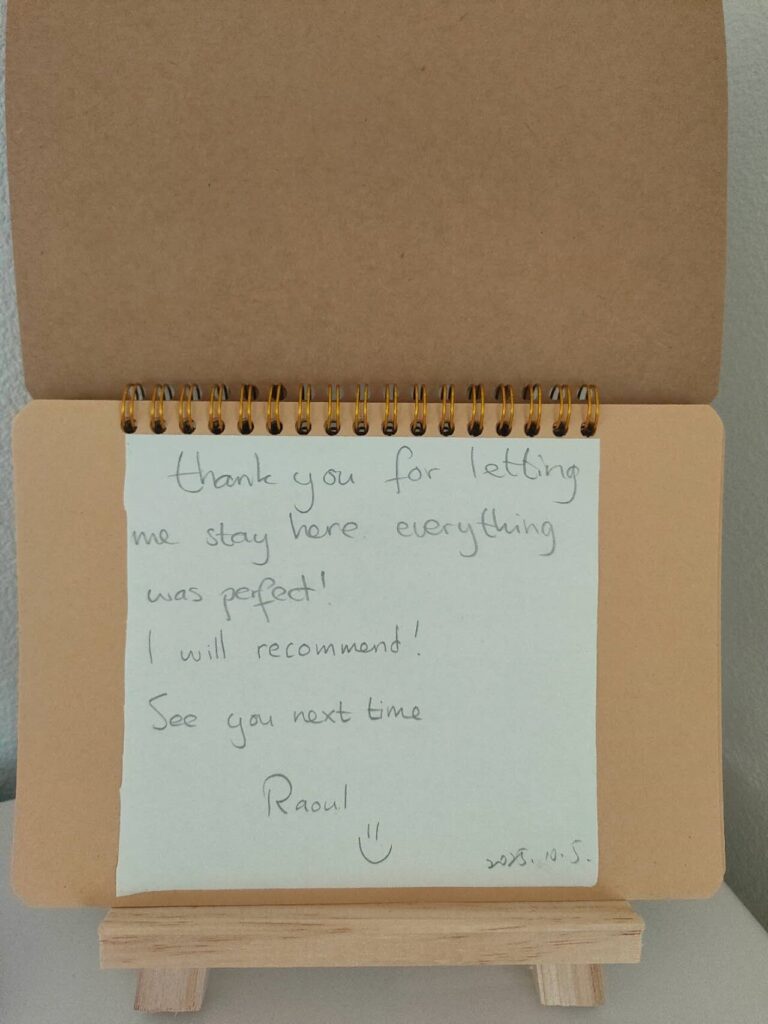 thank you for letting
me stay here. everything
was perfect!
I will recommend!
See you next time
Raoul
2025. 10. 5.